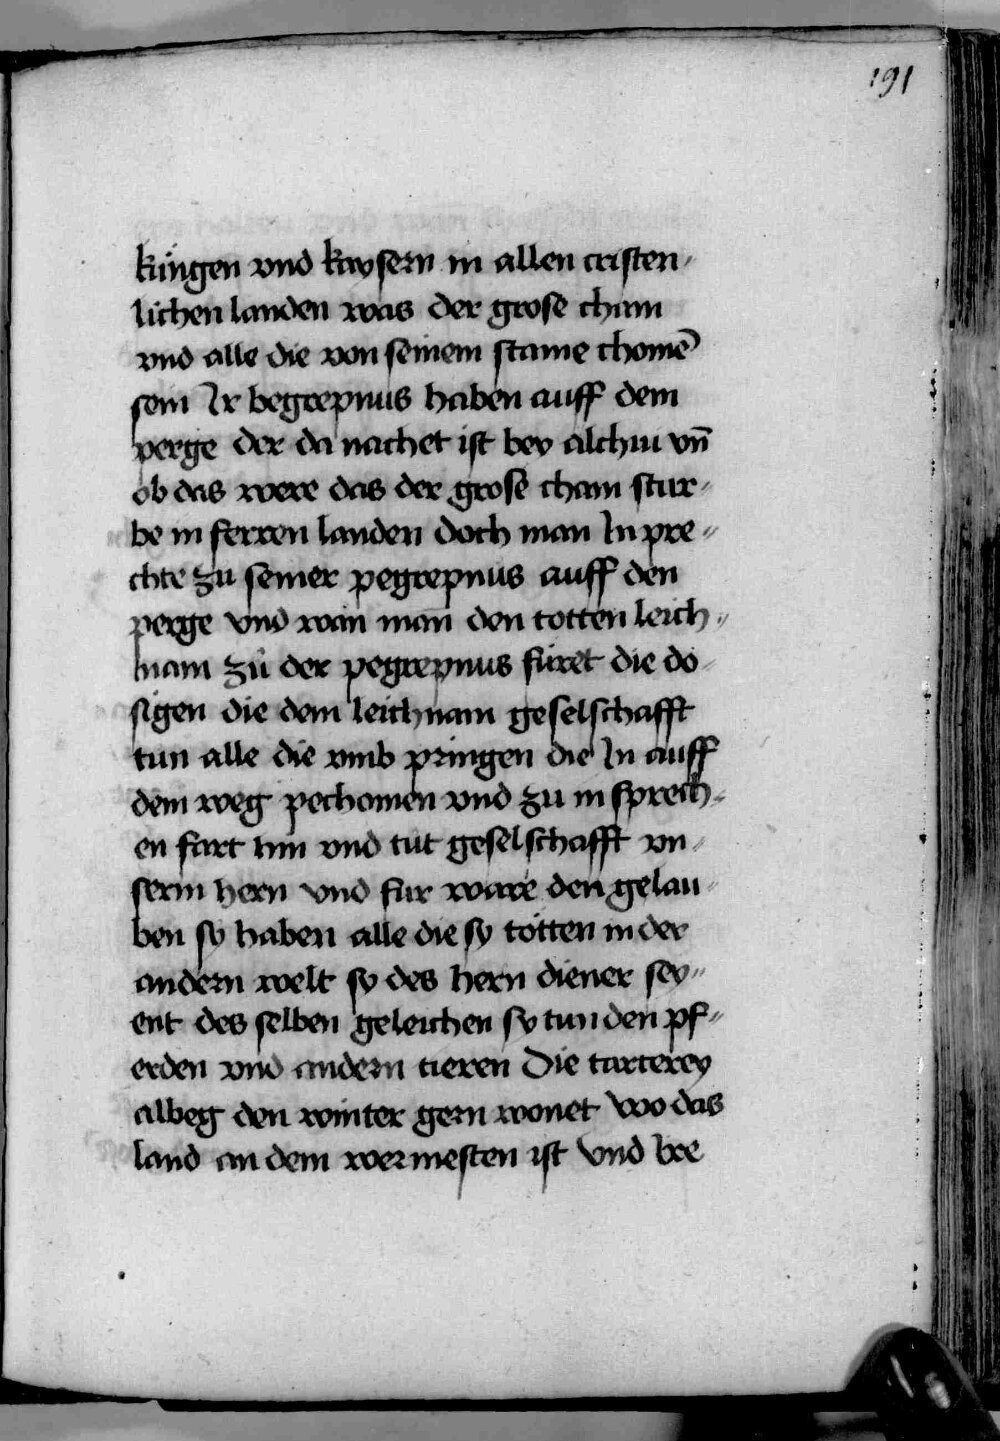 191
küngen vnd kaysern in allen cristen⸗
lichen landen was der grose cham
vnd alle die von seinem stame chomē
sein Ir begrepnus haben auff dem
perge der da nachet ist bey alchai vn̄
ob das were das der grose cham stur⸗
be in ferren landen doch man In pre⸗
chte zu seiner pegrepnus auff den
perge vnd wan man den totten leich⸗
nam zů der pegrepnus füret die do⸗
sigen die dem leichnam geselschafft
tun alle die vmb pringen die In auff
dem weg pechomen vnd zu in sprech⸗
en fart hin vnd tut geselschafft vn⸗
serm hern vnd für ware den gelau⸗
ben sy haben alle die sy tötten in der
andern welt sy des hern diener sey⸗
ent des selben geleichen sy tun den pf⸗
erden vnd andern tieren Die tarterey
albeg den winter gern wonet wo das
land an dem wermesten ist vnd we